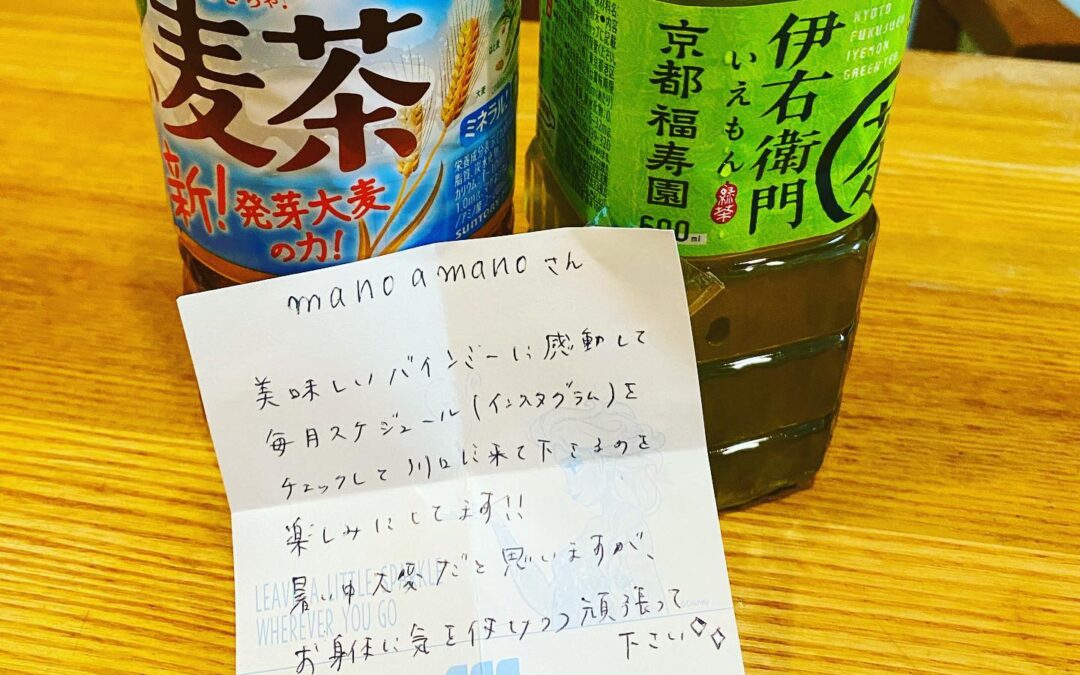 麦茶
新!発芽大麦
の力!
ミネラル
SUNTORY
伊右衛門
いえもん
京都福寿園
緑茶
KYOTO
FUKUJUEN
IYEMON
GREEN TEA
600ml
mano a manoさん
美味しいバインミーに感動して
毎月スケジュール(インスタグラム)を
チェックして川口に来て下さるのを
楽しみにしてます!!
暑い中大変だと思いますが、
お身体に気を付けつつ頑張って
下さい
LEAVE A LITTLE SPARKLE
WHEREVER YOU GO
Disney